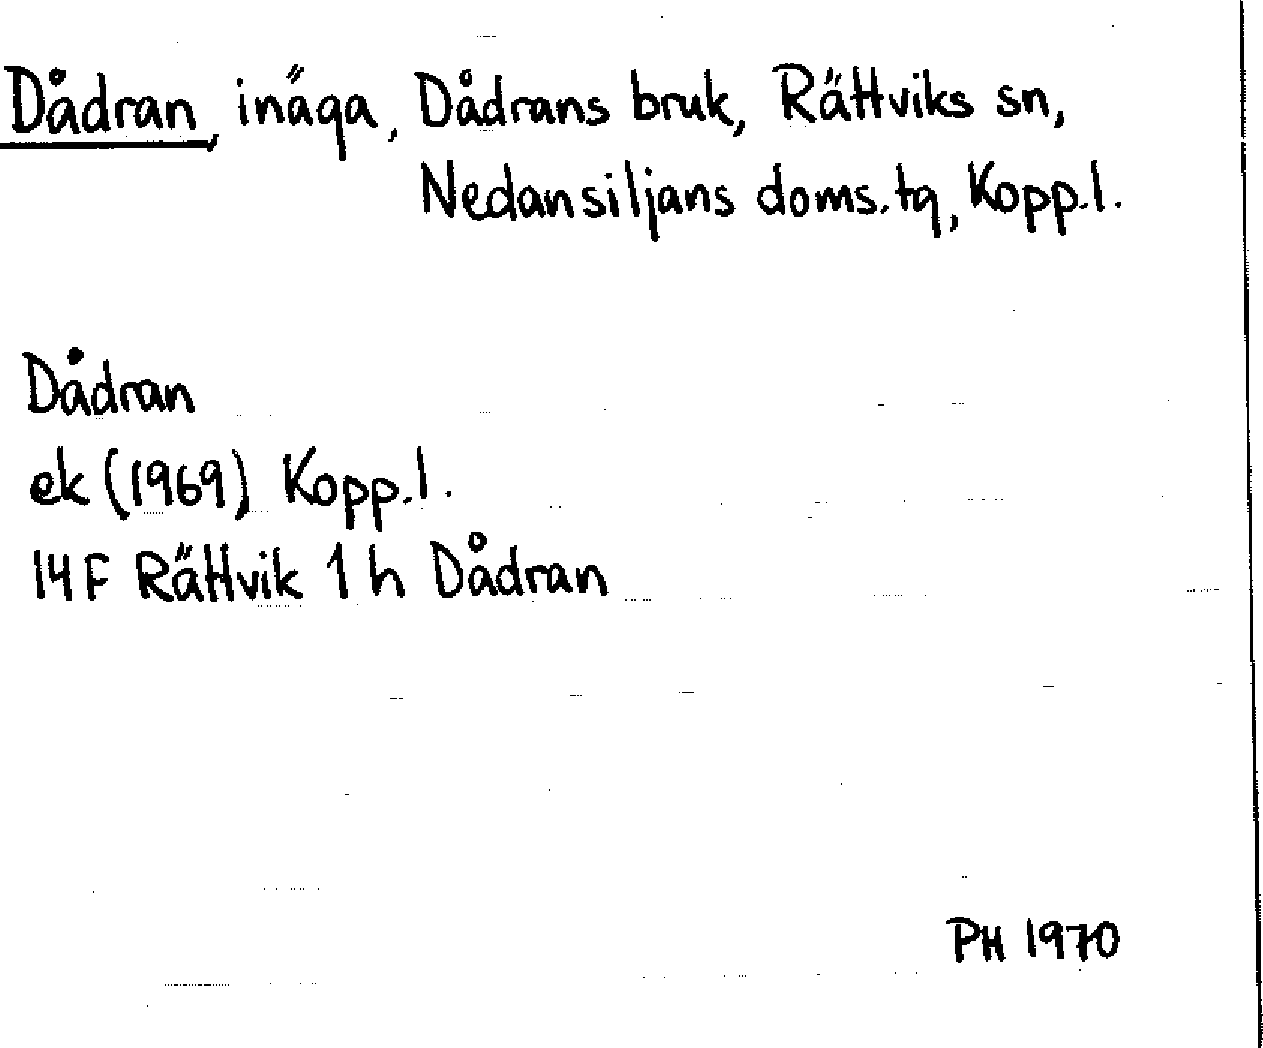 Dådran, inäga, Dådrans bruk, Rättviks sn,
Nedansiljans doms.tg, Kopp.l.
Dådran
ek (1969) Kopp.l.
14F Rättvik 1 h Dådran
PH 1970